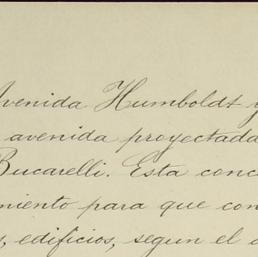 Avenida Humboldt y
avenida proyectada
Bucarelli. Esta conc
miento para que con
s, edificios, segun el